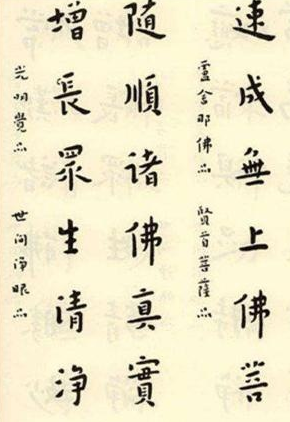 速成無上佛菩
盧舍那佛品 賢首菩薩品
隨順諸佛真實
增長眾生清淨
光明覺品 世间淨眼品